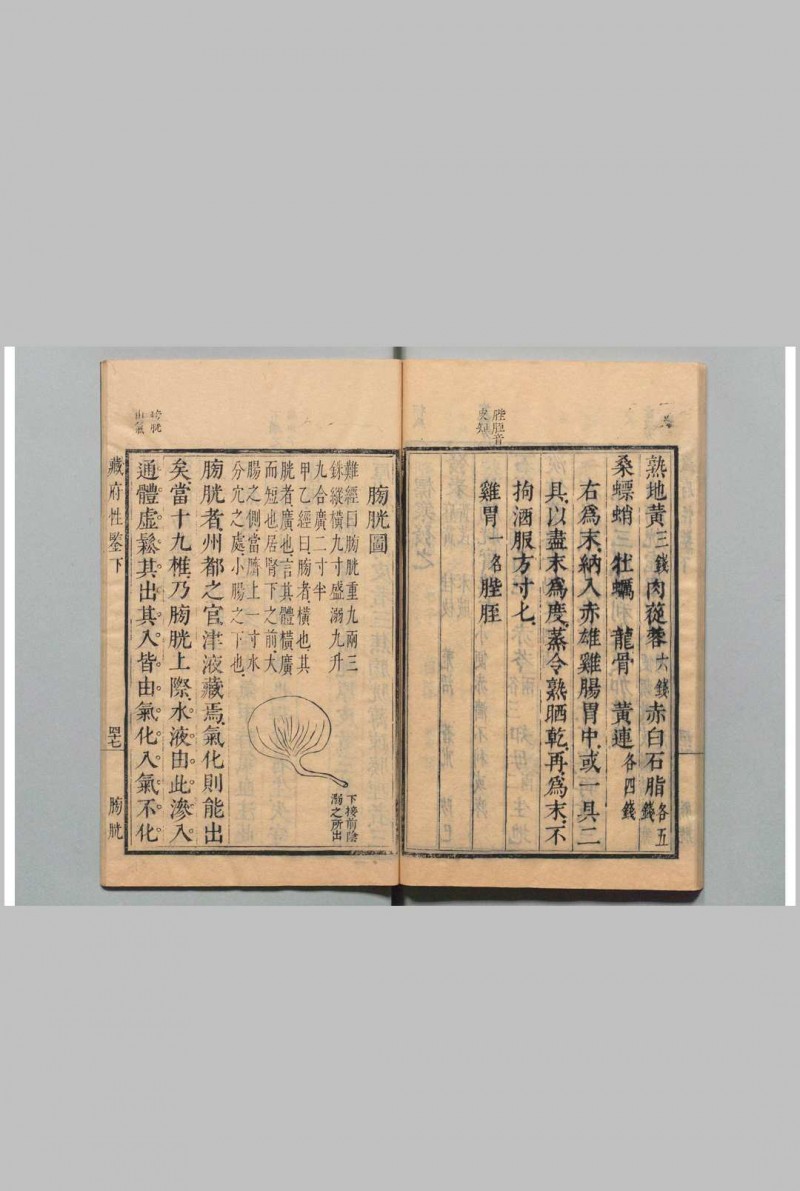 陛脞音
熟地黃三錢肉蓯蓉六錢赤白石脂各五錢
桑螵蛸三 牡蠣 龍骨 黃連各四錢
右爲末納入赤雄雞腸胃中或一具二
具以盡末爲度蒸令熟晒乾再爲末不
拘酒服方寸匕
雞胃一名
膀胱圖
難經曰膀胱重九兩三
銖縱橫九寸盛溺九升
九合廣二寸半
甲乙經曰膀者橫也其
胱者廣也言其體橫廣
而短也居腎下之前大
腸之側當臍上一寸水
分穴之處小腸之下也
下接前陰
溺之所出
膀胱者州都之官津液藏焉氣化則能出
矣當十九椎乃膀胱上際水液由此滲入
通體虛鬆其出其入皆由氣化入氣不化
膀胱
由氣
藏府性鑒下
四七
膀胱